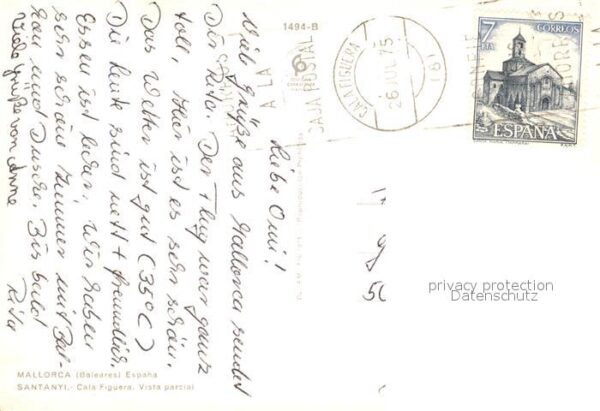 1494-B
CORREOS
7
PTA
ESPAÑA
CALA FIGUERA
26 JUL 75
A LA
CAJA POSTAL
Liebe Omi!
Viele Grüße aus Mallorca sendet
Dir Rita. Der Flug war ganz
toll, hier ist es sehr schön.
Das Wetter ist gut (35°C)
Die Leute sind nett + freundlich.
Essen ist lecker, wir haben
sehr schöne Zimmer mit Bal-
kon und Dusche. Bis bald
Rita
Viele Grüße von Anne
privacy protection
Datenschutz
MALLORCA (Baleares) España
SANTANYI.- Cala Figuera. Vista parcial